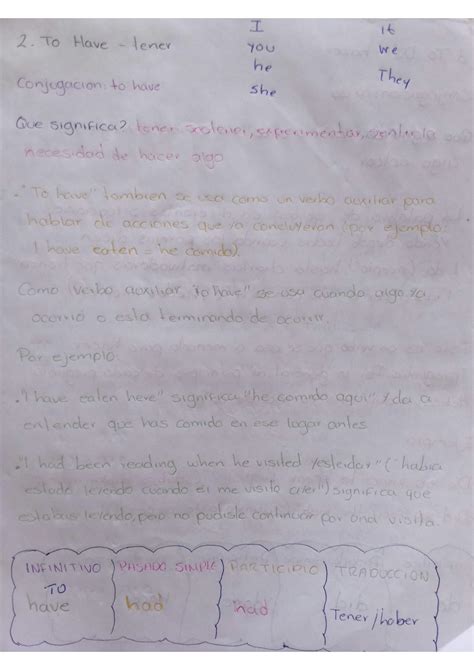 I It
2. To Have - tener YOU We
he They
Conjugacion: to have She
Que significa? tener, sostener, experimentar,
necesidad de hacer algo
."To have" tambien se usa como un verbo auxiliar para
hablar de acciones que ya concluyeron (por ejemplo:
I have eaten = he comido).
Como verbo auxiliar, "to have" se usa cuando algo ya
ocurrio o esta terminando de ocurrir.
Por ejemplo:
."I have eaten here" significa "he comido aqui" y da a
entender que has comido en ese lugar antes
."I had been reading when he visited yesterday" ("habia
estado leyendo cuando el me visito ayer") significa que
estabas leyendo, pero no pudiste continuar por visita.
INFINITIVO PASADO SIMPLE PARTICIPIO TRADUCCION
TO
have had had Tener/haber